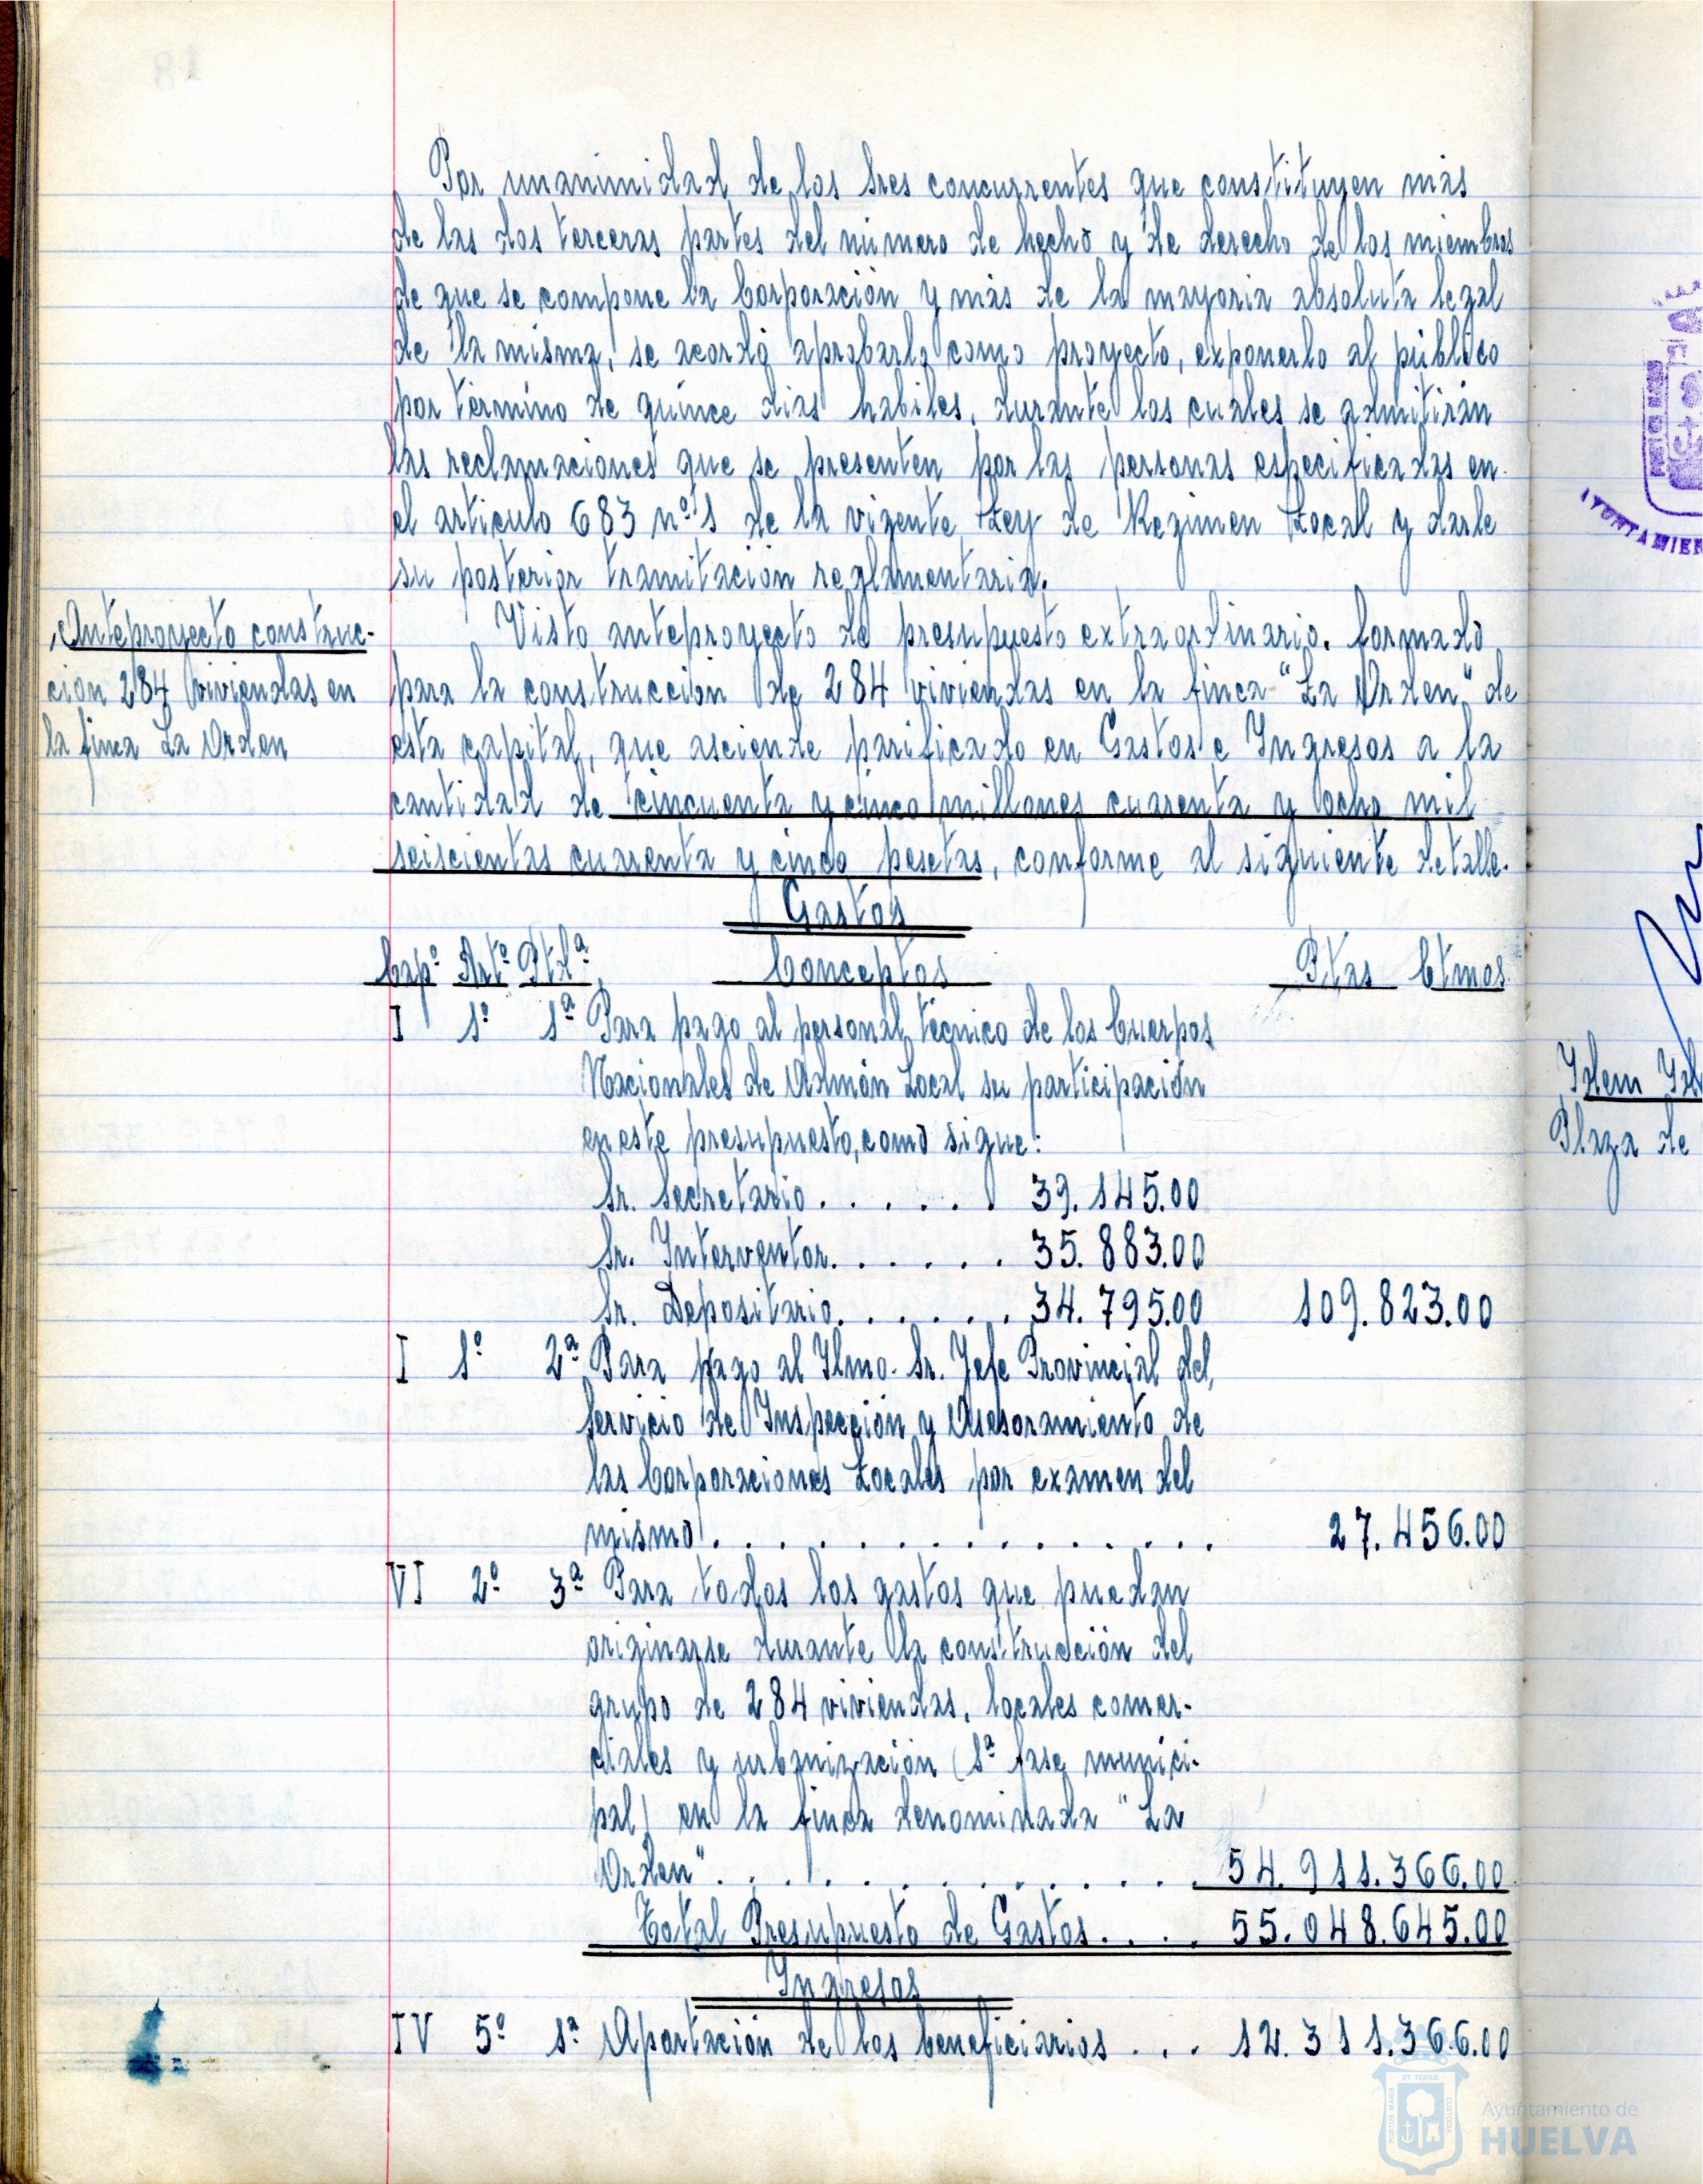 Por unanimidad de los Sres concurrentes que constituyen más
de las dos terceras partes del número de hecho y de derecho de los miembros
de que se compone la Corporación y más de la mayoria absoluta legal
de la misma, se acordó aprobarlo como proyecto, exponerlo al público
por término de quince dias habiles, durante los cuales se admitirán
las reclamaciones que se presenten por las personas especificadas en
el articulo 683 nº 1 de la vigente Ley de Regimen Local y darle
su posterior tramitación reglamentaria.
Anteproyecto construc-
ción 284 viviendas en
la finca La Orden
Visto anteproyecto de presupuesto extraordinario. formado
para la construcción de 284 viviendas en la finca "La Orden" de
esta capital, que asciende parificado en Gastos e Ingresos a la
cantidad de cincuenta y cinco millones cuarenta y ocho mil
seiscientas cuarenta y cinco pesetas, conforme al siguiente detalle.
Gastos
Capº Artº Ptdª Conceptos Ptas Ctmos
I 1º 1ª Para pago al personal técnico de los Cuerpos
Nacionales de Admón Local su participación
en este presupuesto, como sigue:
Sr. Secretario . . . . . . 39.145.00
Sr. Interventor. . . . . . 35.883.00
Sr. Depositario. . . . . . 34.795.00 109.823.00
I 1º 2ª Para pago al Ilmo. Sr. Jefe Provincial del
Servicio de Inspección y Asesoramiento de
las Corporaciones Locales por examen del
mismo. . . . . . . . . . . . . . 27.456.00
VI 2º 3ª Para todos los gastos que puedan
originarse durante la construcción del
grupo de 284 viviendas, locales comer-
ciales y urbanización (1ª fase munici-
pal) en la finca denominada "La
Orden" . . . . . . . . . . . . 54.911.366.00
Total Presupuesto de Gastos. . . . 55.048.645.00
Ingresos
IV 5º 1ª Aportación de los beneficiarios . . . 12.311.366.00
AYUNTAMIEN
Idem
Plaza de
Ayuntamiento de
HUELVA